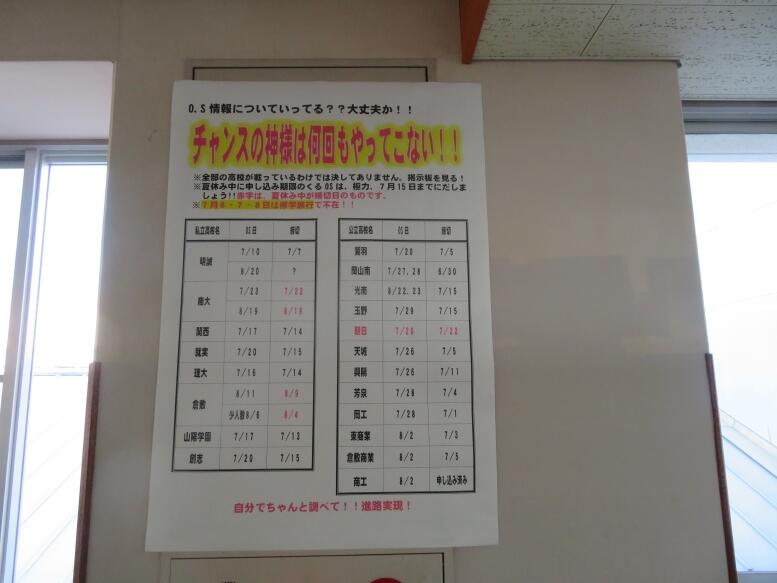 O.S 情報についていってる??大丈夫か!!
チャンスの神様は何回もやってこない!!
※全部の高校が載っているわけでは決してありません。掲示板を見る!
※夏休み中に申し込み期限のくるOSは、極力、7月15日までにだしましょう!!赤字は、夏休み中が締切日のものです。
※7月6・7・8日は修学旅行で不在!!
私立高校名 OS日 締切
明誠 7/10 7/7
8/20 ?
商大 7/23 7/22
8/19 8/18
関西 7/17 7/14
就実 7/20 7/15
理大 7/16 7/14
倉敷 8/11 8/9
少人数8/6 8/4
山陽学園 7/17 7/13
創志 7/20 7/15
公立高校名 OS日 締切
7/20 7/5
岡山南 7/27,28 6/30
光南 8/22,23 7/15
玉野 7/29 7/15
朝日 7/22
天城 7/26 7/5
興陽 7/26 7/11
芳泉 7/28 7/4
岡工 7/28 7/1
東商業 8/2 7/3
倉敷商業 8/2 7/5
商工 8/2 申し込み済み
自分でちゃんと調べて!!進路実現!